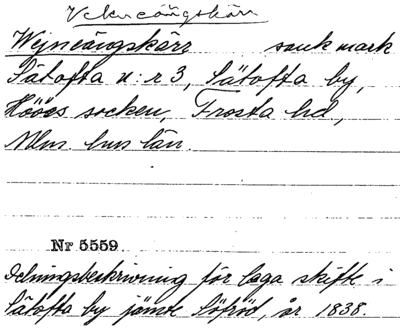 Wejneängskärr sank mark
Sätofta n:r 3, Sätofta by,
Höörs socken, Frosta hd,
Mlm. hus län.
Nr 5559
Delningsbeskrivning för laga skifte i
Sätofta by jämte Söfröd, år 1838.